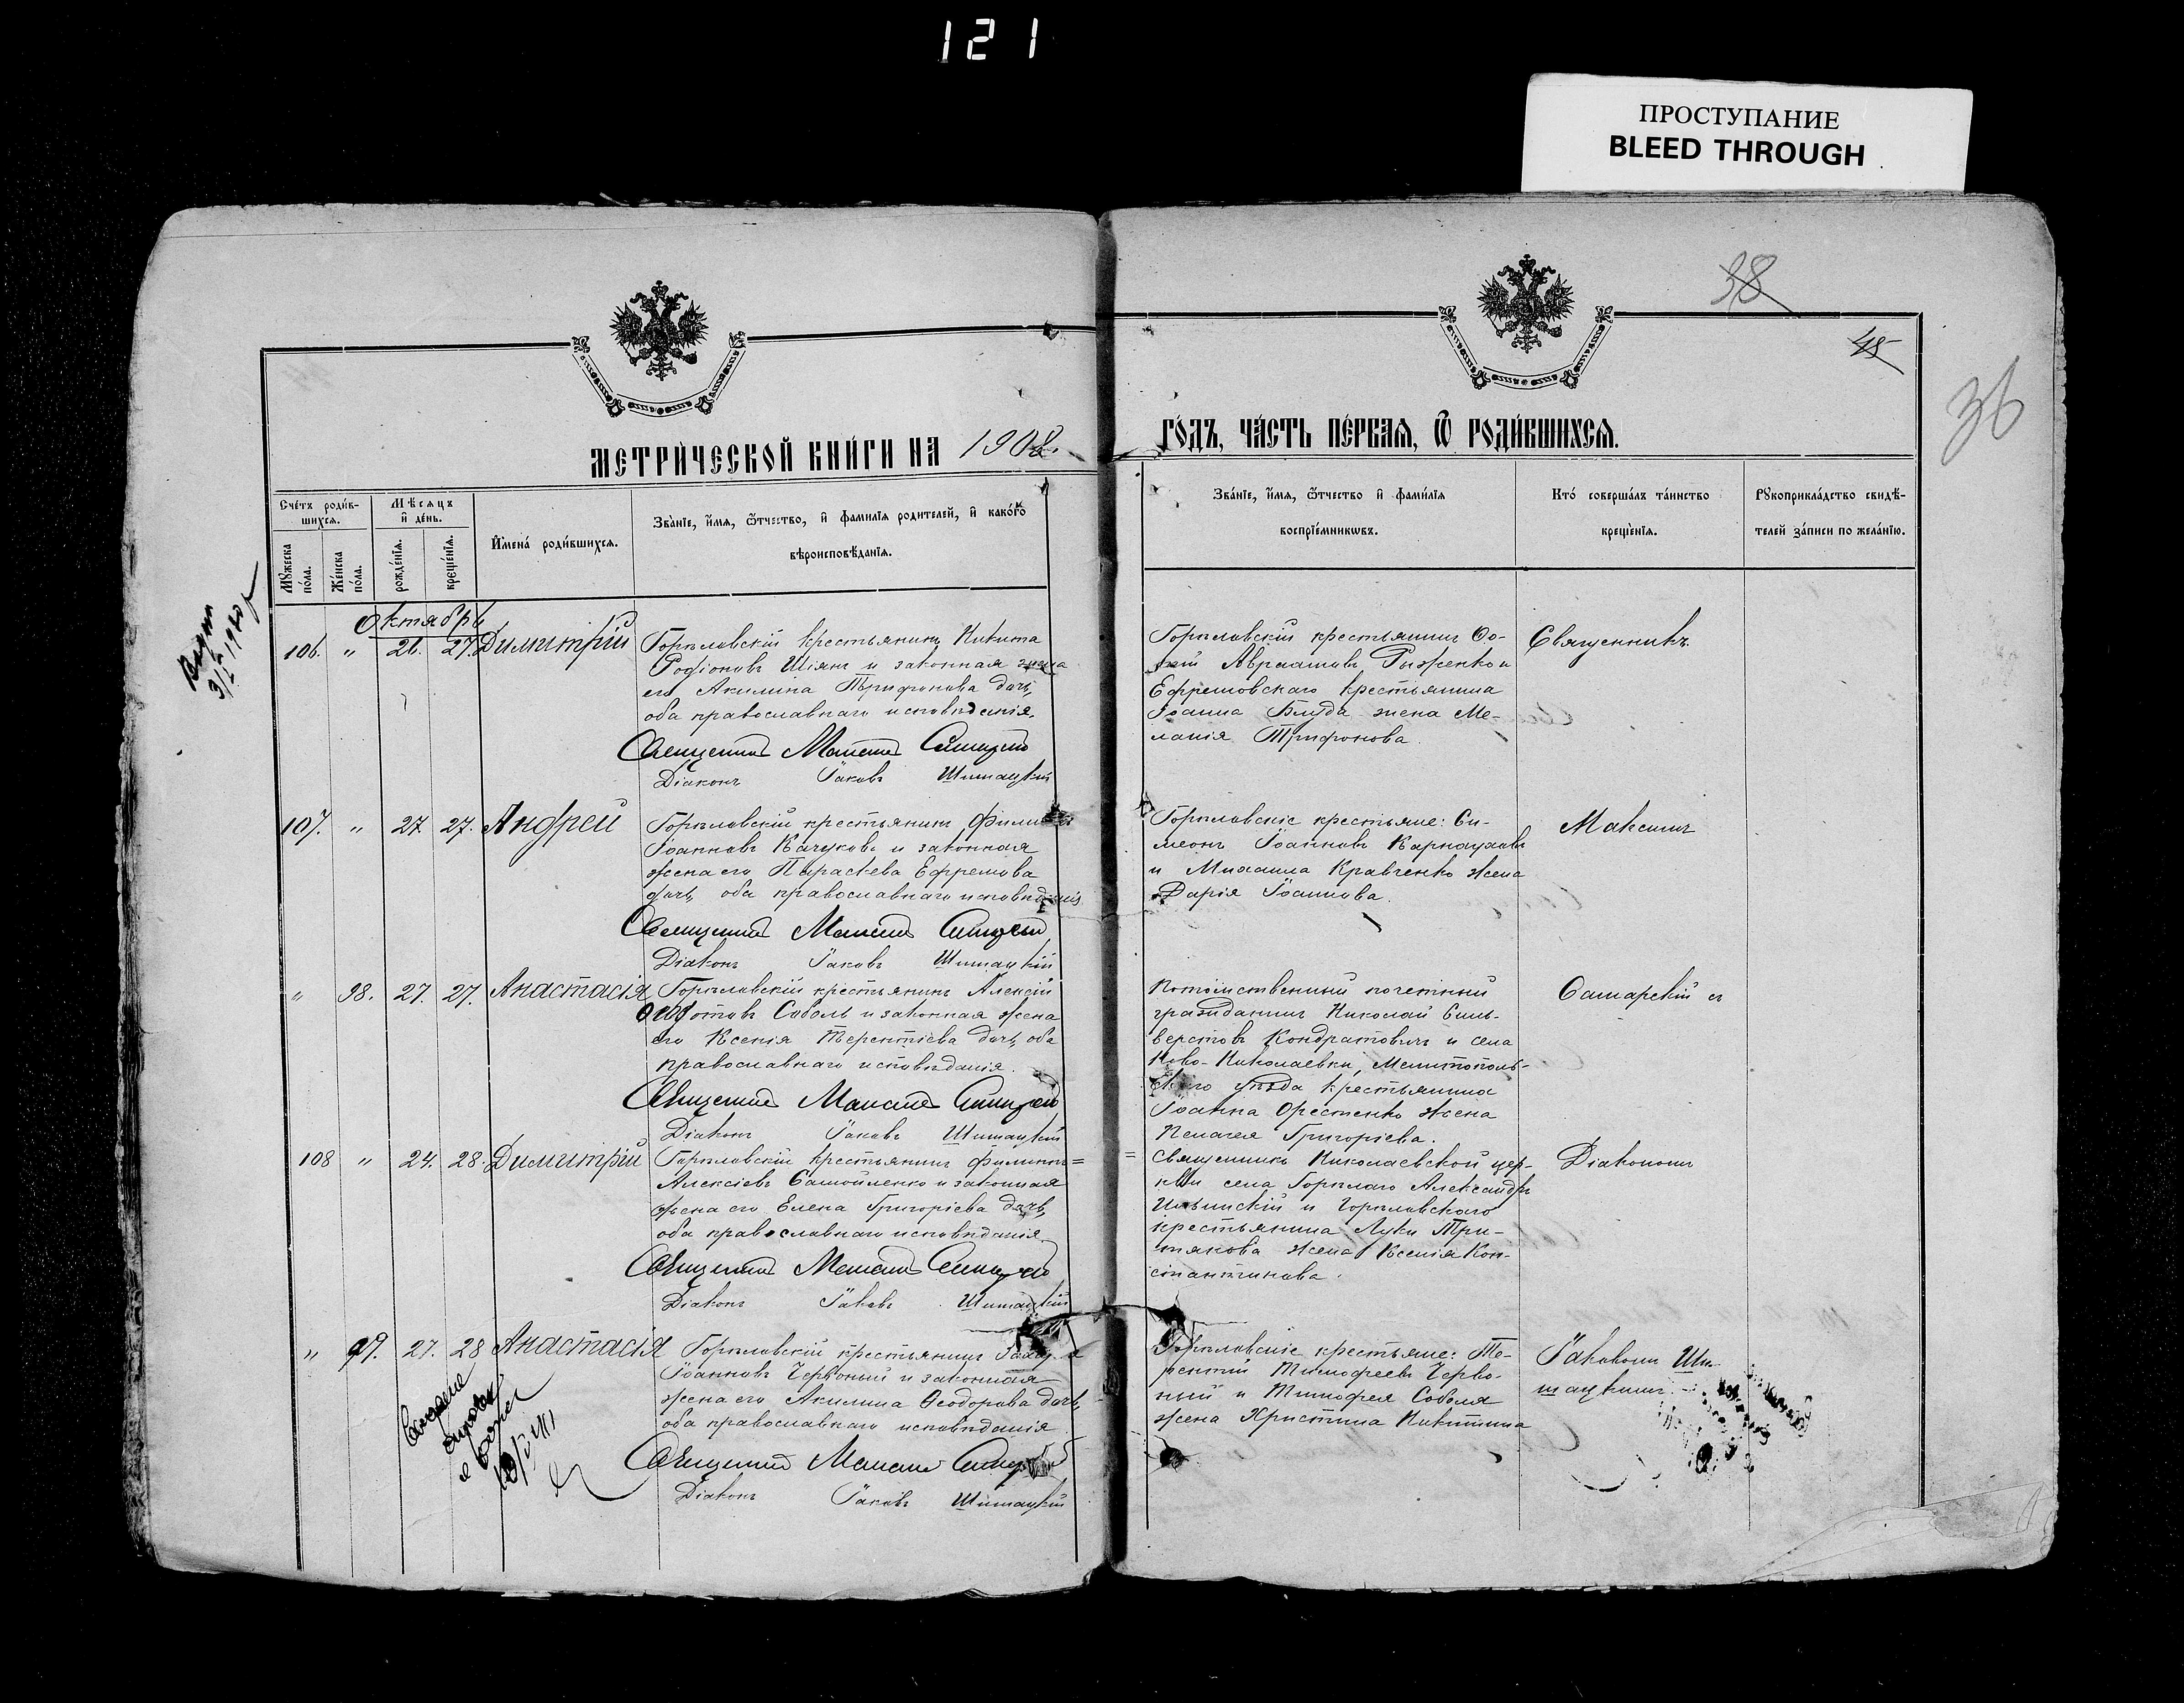 121
ПРОСТУПАНИЕ
BLEED THROUGH
38
45
36
МЕТРИ́ЧЕСКОЙ КНИ́ГИ НА 1908.
ГО́ДЪ, ЧА́СТЬ ПЕ́РВАѦ, Ѿ РОДИ́ВШИХСѦ.
Сче́тъ роди́в-
шихсѧ.
Мѣ́сѧцъ
и҆ де́нь.
Мꙋ́жеска
по́ла.
Же́нска
по́ла.
рожде́нїѧ.
креще́нїѧ.
И҆мена́ роди́вшихсѧ.
Зва́нїе, и҆́мѧ, ѻ҆́тчество, и҆ фами́лїѧ роди́телей, и҆ како́гѡ
вѣроисповѣ́данїѧ.
Зва́нїе, и҆́мѧ, ѻ҆́тчество и҆ фами́лїѧ
воспрїе́мникѡвъ.
Кто́ соверша́лъ та́инство
креще́нїѧ.
Рꙋкоприкла́дство свидѣ́-
телей за́писи по жела́нїю.
Октябрь
106. " 26. 27. Димитрій
Горѣловскій крестьянинъ Никита
Родіоновъ Шіянъ и законная жена
его Акилина Трифонова дочь,
оба православнаго исповѣданія.
Священникъ Максимъ
Діаконъ Іаковъ Шишацкій
Горѣловскій крестьянинъ Ѳо-
Авраамовъ Рыженко и
Ефремовскаго крестьянина
Іоанна Блуда жена Ме-
ланія Трифонова.
Священникъ
107. " 27. 27. Андрей
Горѣловскій крестьянинъ
Іоанновъ Качуковъ и законная
жена его Параскева Ефремова
дочь, оба православнаго исповѣданія
Священникъ Максимъ
Діаконъ Іаковъ Шишацкій
Горѣловскіе крестьяне: Си-
меонъ Іоанновъ Карнауховъ
и Михаила Кравченко жена
Дарія Іоаннова.
Максимъ
" 98. 27. 27. Анастасія
Горѣловскій крестьянинъ Алексій
Соболь и законная жена
его Ксенія Терентіева дочь, оба
православнаго исповѣданія.
Священникъ Максимъ
Діаконъ Іаковъ Шишацкій
Потомственный почетный
гражданинъ Николай Силь-
верстовъ Кондратовичъ и села
Ново-Николаевки, Мелитополь-
скаго уѣзда крестьянина
Іоанна жена
Пелагея Григоріева.
Самарскій съ
108 " 24. 28. Димитрій
Горѣловскій крестьянинъ Филиппъ=
Алексіевъ Самойленко и законная
жена его Елена Григоріева дочь,
оба православнаго исповѣданія
Священникъ Максимъ
Діаконъ Іаковъ Шишацкій
= Священникъ Николаевской цер-
кви села Горѣлаго Александръ
Ильинскій и Горѣловскаго
крестьянина Луки Три-
тякова жена Ксенія Кон-
стантинова.
Діакономъ
" 99. 27. 28 Анастасія
Горѣловскій крестьянинъ
Іоанновъ Червоный и законная
жена его Акилина Ѳеодорова дочь,
оба православнаго исповѣданія
Священникъ Максимъ
Діаконъ Іаковъ Шишацкій
Горѣловскіе крестьяне: Те-
рентій Тимофеевъ Черво-
ный и Тимофея Соболя
жена Христина Никитина
Іаковомъ Ши-
шацкимъ.